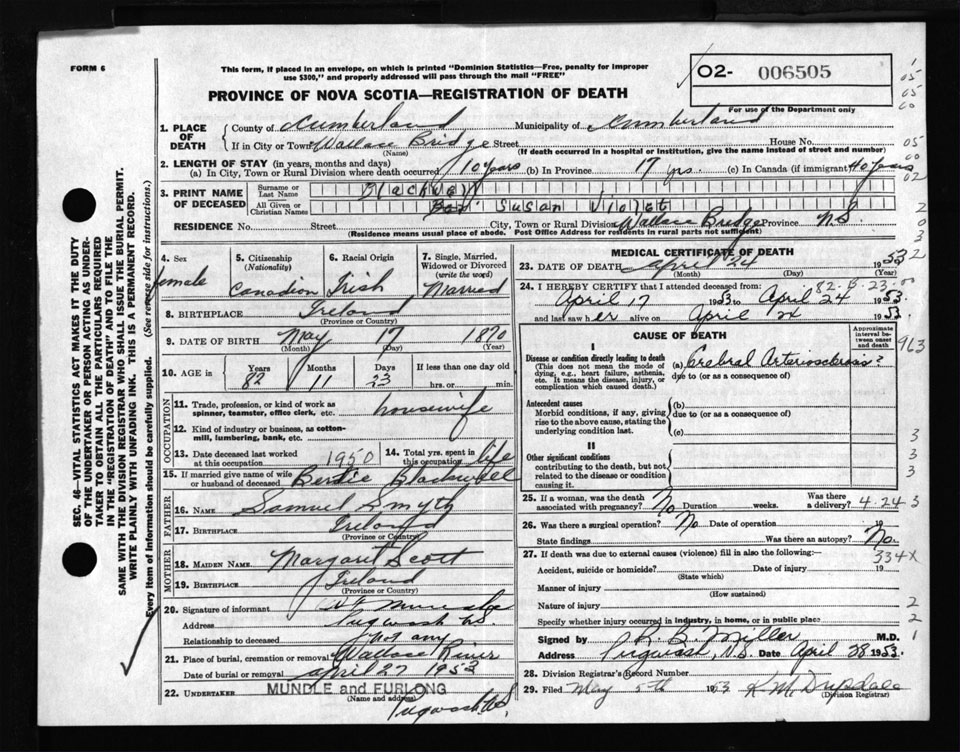 FORM 6
This form, if placed in an envelope, on which is printed "Dominion Statistics—Free, penalty for improper
use $300," and properly addressed will pass through the mail "FREE"
O2- 006505
For use of the Department only
PROVINCE OF NOVA SCOTIA—REGISTRATION OF DEATH
1. PLACE OF DEATH County of Cumberland Municipality of Cumberland
If in City or Town Wallace Bridge Street House No.
(Name) (If death occurred in a hospital or institution, give the name instead of street and number)
2. LENGTH OF STAY (in years, months and days)
(a) In City, Town or Rural Division where death occurred 10 years (b) In Province 17 yrs. (c) In Canada (if immigrant) 40 years
3. PRINT NAME OF DECEASED Surname or Last Name
All Given or Christian Names Susan Violet
RESIDENCE No. Street City, Town or Rural Division Wallace Bridge Province N.S.
(Residence means usual place of abode. Post Office Address for residents in rural parts not sufficient)
4. Sex female
5. Citizenship (Nationality) Canadian
6. Racial Origin Irish
7. Single, Married, Widowed or Divorced (write the word) Married
8. BIRTHPLACE Ireland
(Province or Country)
9. DATE OF BIRTH May 17 1870
(Month) (Day) (Year)
10. AGE in Years 82 Months 11 Days 23 If less than one day hrs. or min.
OCCUPATION
11. Trade, profession, or kind of work as spinner, teamster, office clerk, etc. housewife
12. Kind of industry or business, as cotton-mill, lumbering, bank, etc.
13. Date deceased last worked at this occupation 1950
14. Total yrs. spent in this occupation life
15. If married give name of wife or husband of deceased Bertie Blackwell
FATHER
16. Name Samuel Smyth
17. Birthplace Ireland
(Province or Country)
MOTHER
18. MAIDEN NAME Margaret Scott
19. BIRTHPLACE Ireland
(Province or Country)
20. Signature of informant
Address Pugwash N.S.
Relationship to deceased not any
21. Place of burial, cremation or removal Wallace River
Date of burial or removal April 27 1953
22. UNDERTAKER MUNDLE and FURLONG
(Name and address)
Pugwash N.S.
MEDICAL CERTIFICATE OF DEATH
23. DATE OF DEATH April 24 1953
(Month) (Day) (Year)
24. I HEREBY CERTIFY that I attended deceased from:
April 17 1953 to April 24 1953
and last saw her alive on April 24 1953.
CAUSE OF DEATH
Approximate interval between onset and death
I
Disease or condition directly leading to death
(This does not mean the mode of dying, e.g., heart failure, asthenia, etc. It means the disease, injury, or complication which caused death.)
(a) cerebral Arteriosclerosis ?
due to (or as a consequence of)
Antecedent causes
Morbid conditions, if any, giving rise to the above cause, stating the underlying condition last.
(b)
due to (or as a consequence of)
(c)
II
Other significant conditions
contributing to the death, but not related to the disease or condition causing it.
25. If a woman, was the death associated with pregnancy? No Duration weeks. Was there a delivery?
4-24-3
26. Was there a surgical operation? No Date of operation 19
State findings Was there an autopsy? No.
27. If death was due to external causes (violence) fill in also the following:—
334X
Accident, suicide or homicide? Date of injury 19
(State which)
Manner of injury
(How sustained)
Nature of injury
Specify whether injury occurred in industry, in home, or in public place
Signed by B. Miller M.D.
Address Pugwash, N.S. Date April 28 1953.
28. Division Registrar's Record Number
29. Filed May 5th 1953
(Division Registrar)
SEC. 46—VITAL STATISTICS ACT MAKES IT THE DUTY
OF THE UNDERTAKER OR PERSON ACTING AS UNDER-
TAKER TO OBTAIN ALL THE PARTICULARS REQUIRED
IN THE "REGISTRATION OF DEATH" AND TO FILE THE
SAME WITH THE DIVISION REGISTRAR WHO SHALL ISSUE THE BURIAL PERMIT.
WRITE PLAINLY WITH UNFADING INK. THIS IS A PERMANENT RECORD.
Every item of information should be carefully supplied. (See reverse side for instructions.)